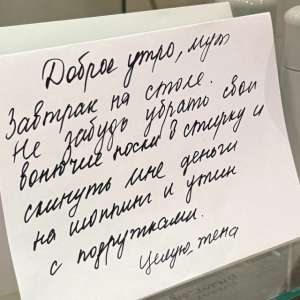 Доброе утро, муж
Завтрак на столе.
Не забудь убрать свои
вонючие носки в стирку и
скинуть мне деньги
на шоппинг и ужин
с подружками.
Целую, жена